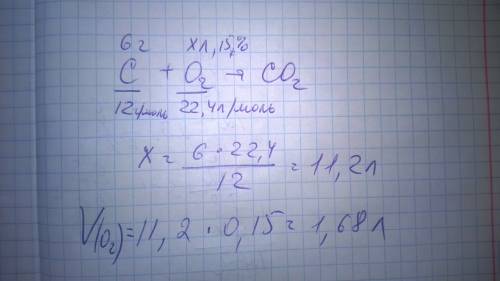 6 г   x л, 15%
C + O₂ → CO₂
12 г/моль 22,4 л/моль
x = 6 · 22,4 / 12 = 11,2 л
V(O₂) = 11,2 · 0,15 = 1,68 л